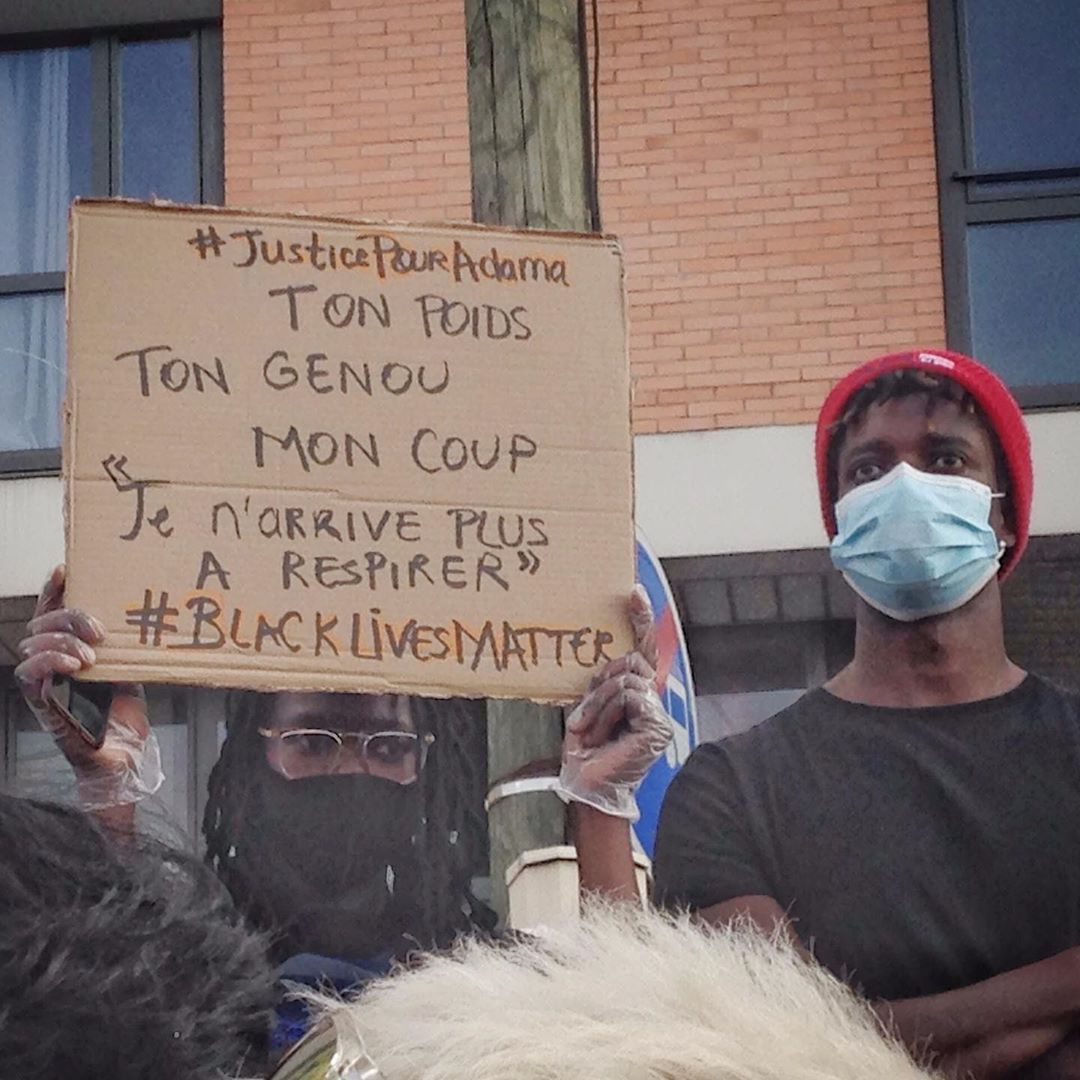 #JusticePourAdama
TON POIDS
TON GENOU
MON COUP
"Je n'ARRIVE PLUS
A RESPIRER"
#BLACKLivesMATTER